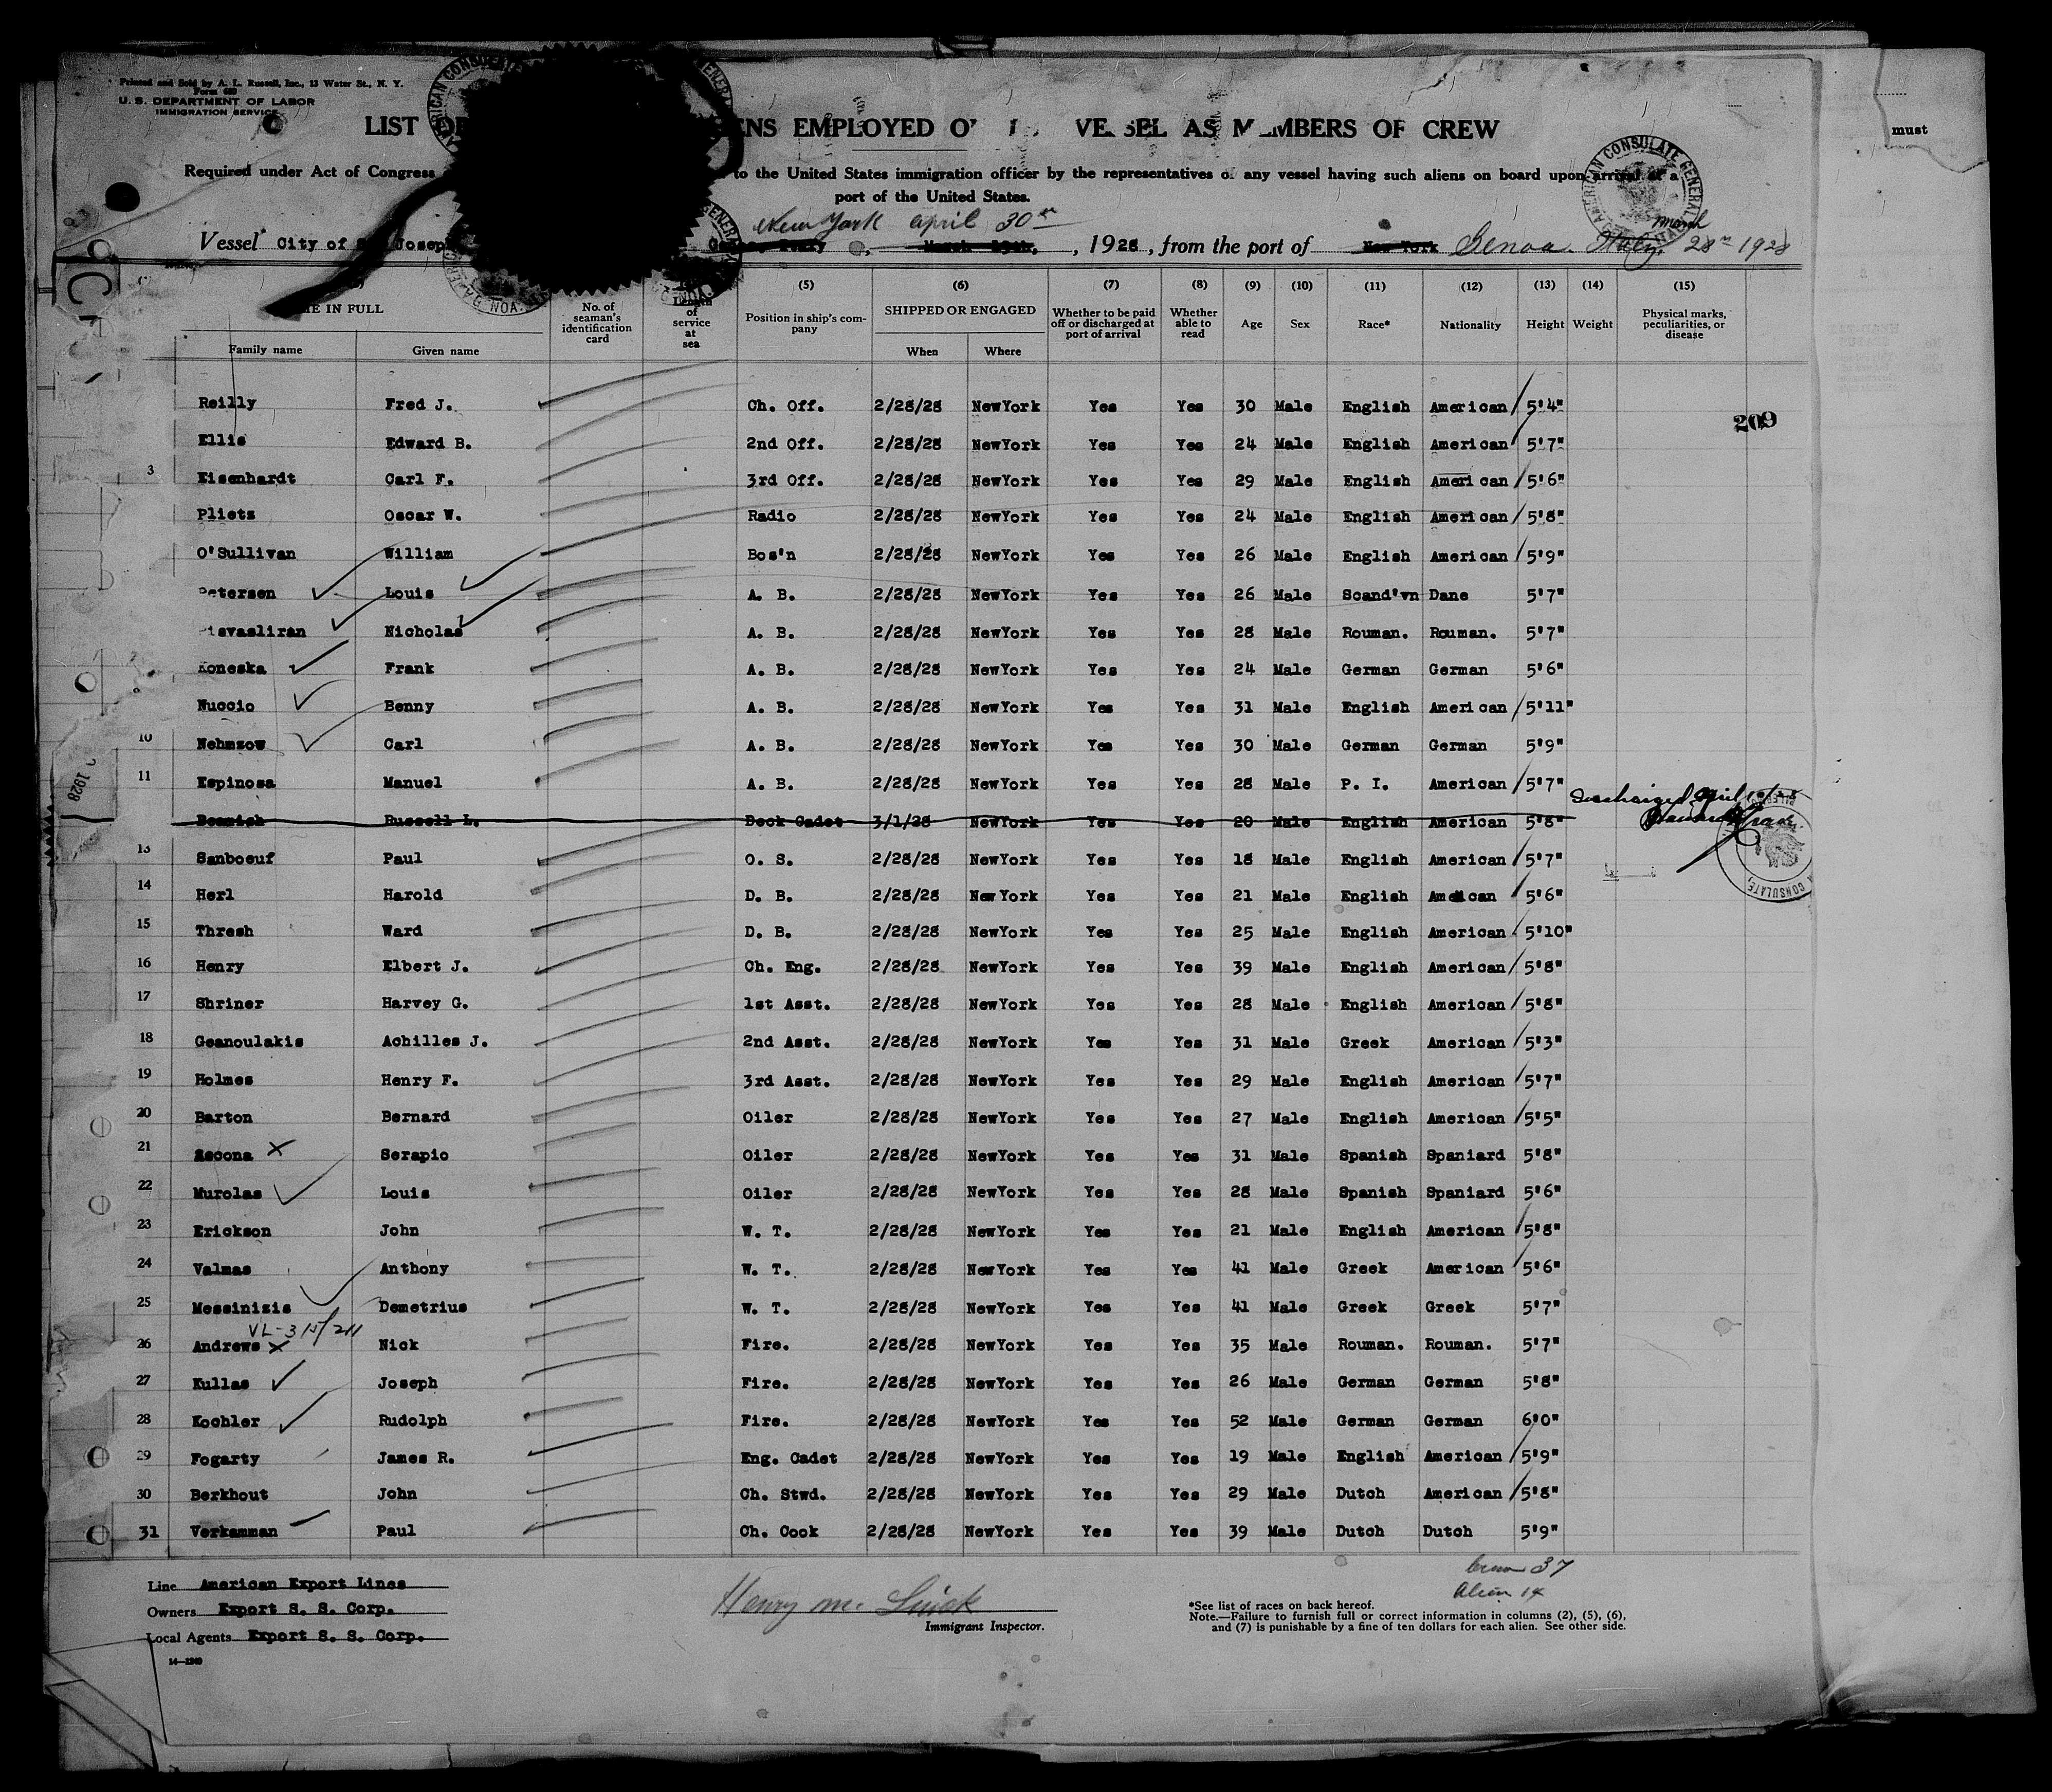 Printed and Sold by A. L. Russell, Inc., 13 Water St., N. Y.
Form 680
U. S. DEPARTMENT OF LABOR
IMMIGRATION SERVICE
LIST EMPLOYED VESSEL AS MEMBERS OF CREW
must
Required under Act of Congress to the United States immigration officer by the representatives of any vessel having such aliens on board upon arrival at a
port of the United States.
AMERICAN CONSULATE GENERAL
New York April 30th
Vessel City of Joseph March 19th, , 1928, from the port of New York Genoa Italy, March 28th 1928
NAME IN FULL
Family name Given name
No. of seaman's identification card
Length of service at sea
(5) Position in ship's company
(6) SHIPPED OR ENGAGED
When Where
(7) Whether to be paid off or discharged at port of arrival
(8) Whether able to read
(9) Age
(10) Sex
(11) Race*
(12) Nationality
(13) Height
(14) Weight
(15) Physical marks, peculiarities, or disease
Reilly Fred J. Ch. Off. 2/28/28 NewYork Yes Yes 30 Male English American 5'4"
209
Ellis Edward B. 2nd Off. 2/28/28 NewYork Yes Yes 24 Male English American 5'7"
3 Eisenhardt Carl F. 3rd Off. 2/28/28 NewYork Yes Yes 29 Male English American 5'6"
Plietz Oscar W. Radio 2/28/28 NewYork Yes Yes 24 Male English American 5'8"
O'Sullivan William Bos'n 2/28/28 NewYork Yes Yes 26 Male English American 5'9"
Petersen Louis A. B. 2/28/28 NewYork Yes Yes 26 Male Scand'vn Dane 5'7"
Nicholas A. B. 2/28/28 NewYork Yes Yes 28 Male Rouman. Rouman. 5'7"
Koneska Frank A. B. 2/28/28 NewYork Yes Yes 24 Male German German 5'6"
Nuccio Benny A. B. 2/28/28 NewYork Yes Yes 31 Male English American 5'11"
10 Nehmzow Carl A. B. 2/28/28 NewYork Yes Yes 30 Male German German 5'9"
11 Espinosa Manuel A. B. 2/28/28 NewYork Yes Yes 28 Male P. I. American 5'7"
Discharged April
Beamish Russell L. Deck Cadet 3/1/28 NewYork Yes Yes 20 Male English American 5'8"
13 Sanboeuf Paul O. S. 2/28/28 NewYork Yes Yes 18 Male English American 5'7"
14 Herl Harold D. B. 2/28/28 New York Yes Yes 21 Male English American 5'6"
15 Thresh Ward D. B. 2/28/28 NewYork Yes Yes 25 Male English American 5'10"
16 Henry Elbert J. Ch. Eng. 2/28/28 NewYork Yes Yes 39 Male English American 5'8"
17 Shriner Harvey G. 1st Asst. 2/28/28 NewYork Yes Yes 28 Male English American 5'8"
18 Geanoulakis Achilles J. 2nd Asst. 2/28/28 NewYork Yes Yes 31 Male Greek American 5'3"
19 Holmes Henry F. 3rd Asst. 2/28/28 NewYork Yes Yes 29 Male English American 5'7"
20 Barton Bernard Oiler 2/28/28 NewYork Yes Yes 27 Male English American 5'5"
21 Ascona Serapio Oiler 2/28/28 NewYork Yes Yes 31 Male Spanish Spaniard 5'8"
22 Murolas Louis Oiler 2/28/28 NewYork Yes Yes 28 Male Spanish Spaniard 5'6"
23 Erickson John W. T. 2/28/28 NewYork Yes Yes 21 Male English American 5'8"
24 Valmas Anthony W. T. 2/28/28 NewYork Yes Yes 41 Male Greek American 5'6"
25 Messinizis Demetrius W. T. 2/28/28 NewYork Yes Yes 41 Male Greek Greek 5'7"
26 Andrews Nick Fire. 2/28/28 NewYork Yes Yes 35 Male Rouman. Rouman. 5'7"
27 Kullas Joseph Fire. 2/28/28 NewYork Yes Yes 26 Male German German 5'8"
28 Kochler Rudolph Fire. 2/28/28 NewYork Yes Yes 52 Male German German 6'0"
29 Fogarty James R. Eng. Cadet 2/28/28 NewYork Yes Yes 19 Male English American 5'9"
30 Berkhout John Ch. Stwd. 2/28/28 NewYork Yes Yes 29 Male Dutch American 5'8"
31 Verkamman Paul Ch. Cook 2/28/28 NewYork Yes Yes 39 Male Dutch Dutch 5'9"
Crew 37
Alien 14
Line American Export Lines
Owners Export S. S. Corp.
Local Agents Export S. S. Corp.
14—1240
Henry M.
Immigrant Inspector.
*See list of races on back hereof.
Note.—Failure to furnish full or correct information in columns (2), (5), (6),
and (7) is punishable by a fine of ten dollars for each alien. See other side.
1928